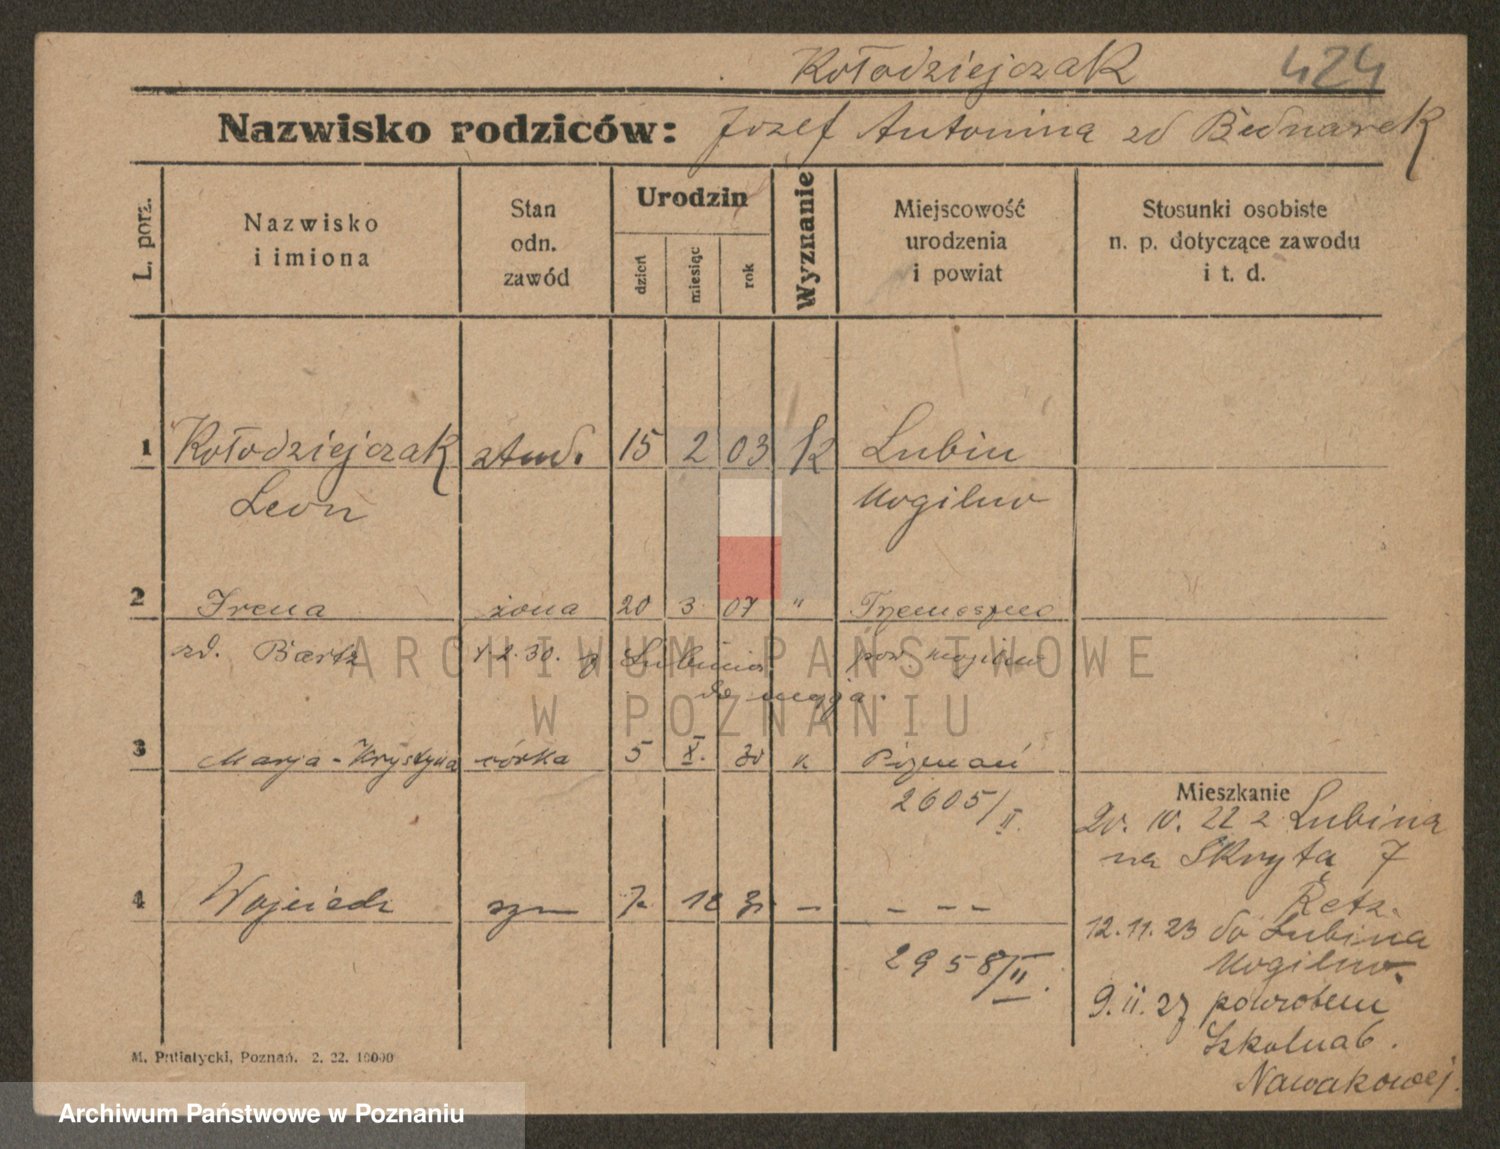 Kołodziejczak 424
Nazwisko rodziców: Jozef Antonina zd Bednarek
L. porz.
Nazwisko
i imiona
Stan
odn.
zawód
Urodzin
dzień
miesiąc
rok
Wyznanie
Miejscowość
urodzenia
i powiat
Stosunki osobiste
n. p. dotyczące zawodu
i t. d.
1 Kołodziejczak stud. 15 2 03 K Lubin
Leon Mogilno
2 Irena żona 20 3 07 " Trzemeszno
zd. Bartz 1.2.30. z Lubinia pow. Mogilno
do męża.
3 Marja-Krystyna córka 5 X. 30 k Poznań
2605/II.
Mieszkanie
20. 10. 22 z Lubina
na Skryta 7
Retz.
4 Wojciech syn — – – –
12.11.23 do Lubina
Mogilno.
2958/II.
9. II. 27 powrotem
Szkolna 6.
Nawakowej.
M. Putiatycki, Poznań. 2. 22. 10000
ARCHIWUM PAŃSTWOWE
W POZNANIU
Archiwum Państwowe w Poznaniu